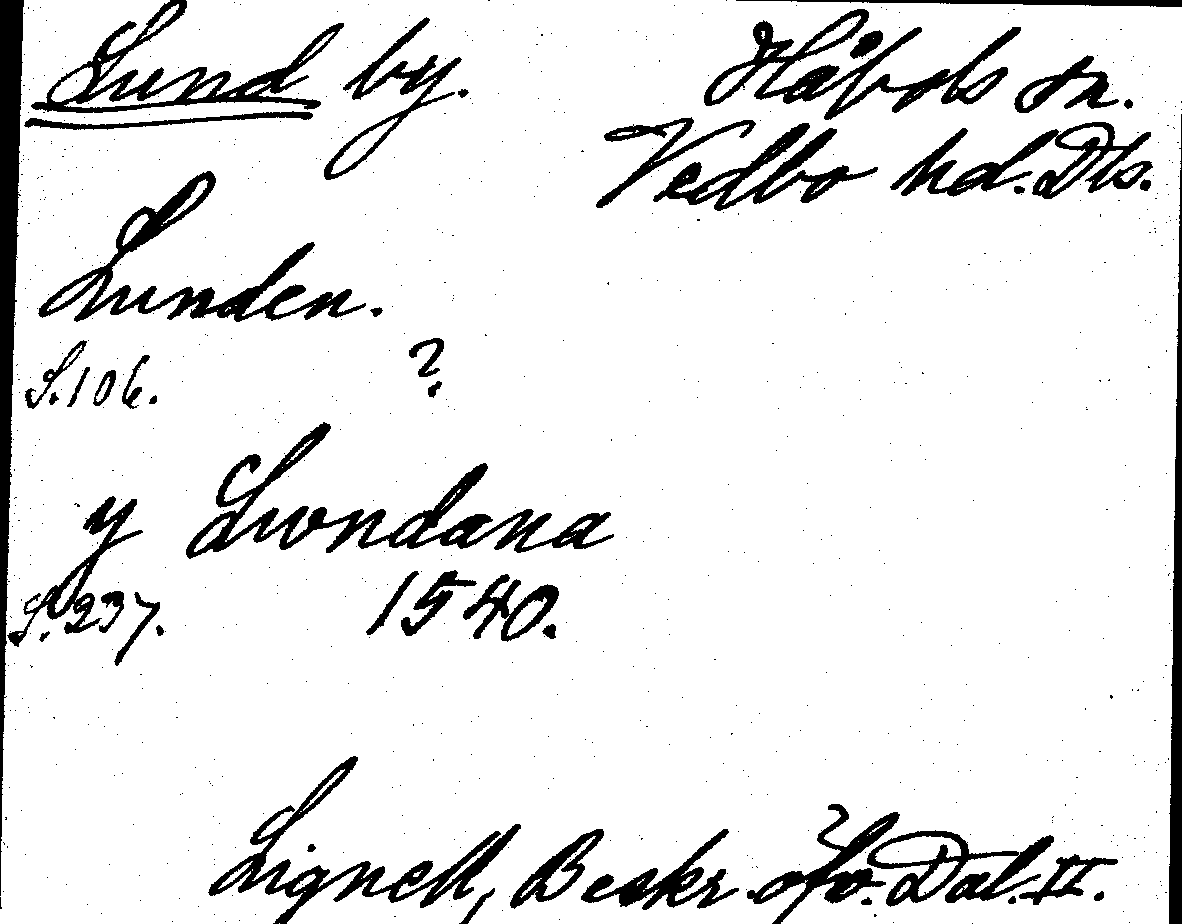 Lund by.
Håbols sn.
Vedbo hd. Dls.
Lunden.
S. 106. ?
y Lwndana
S. 237. 1540.
Lignell, Beskr. öfv. Dal. II.